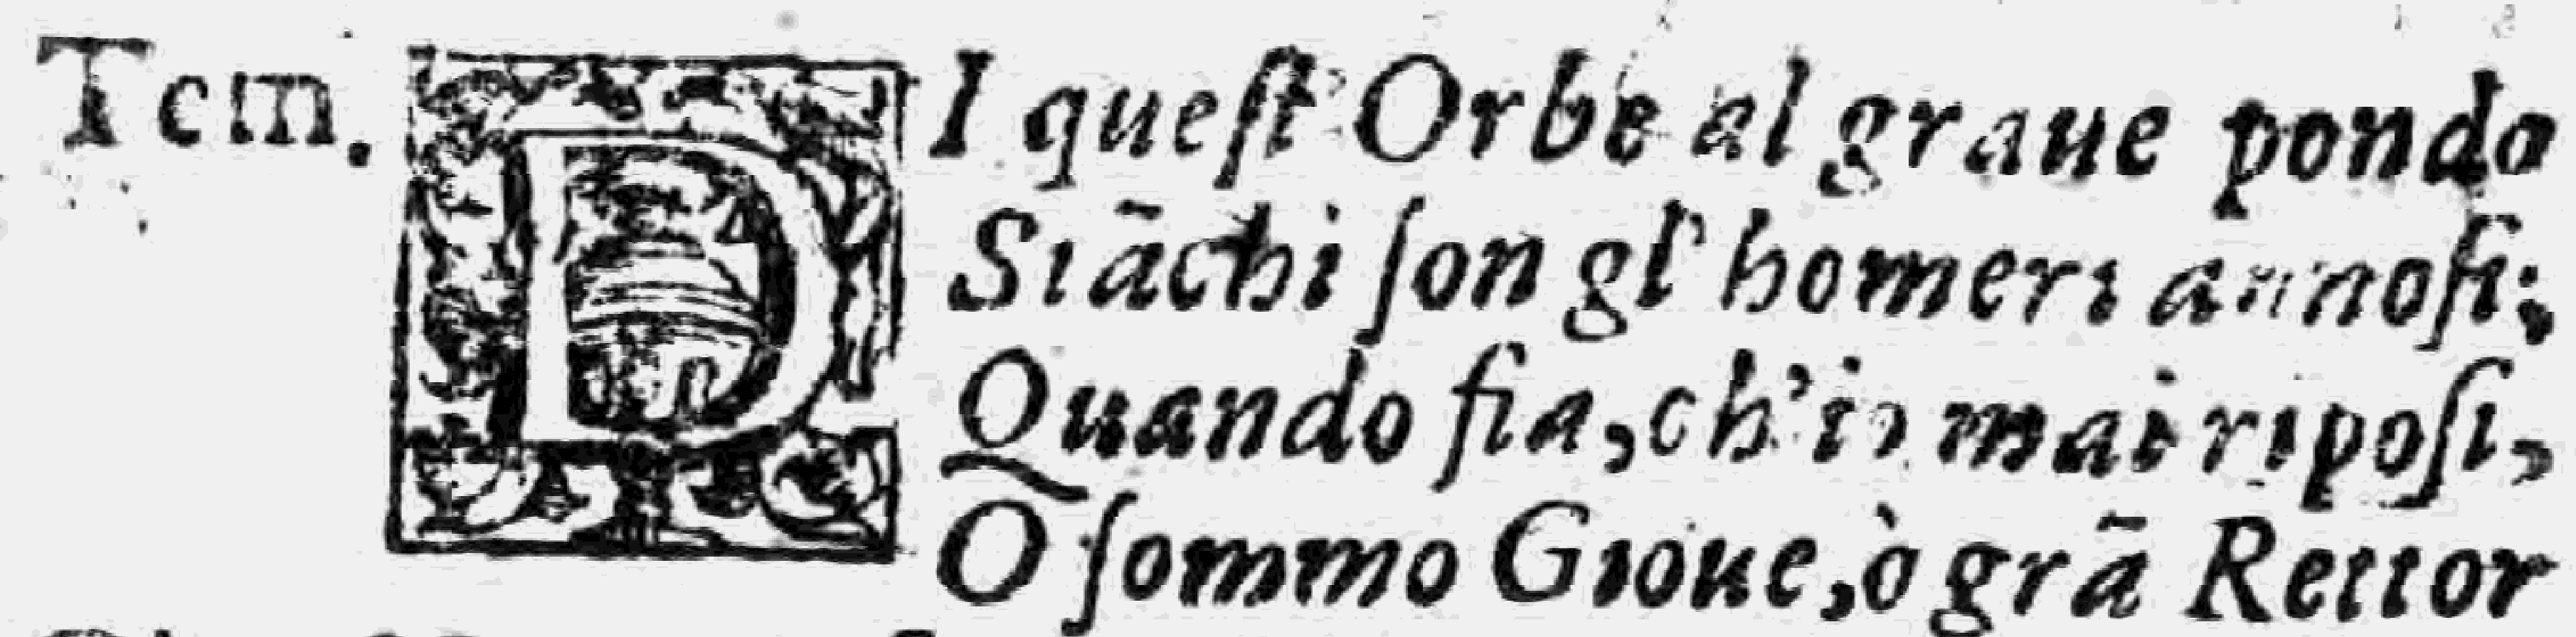 Tem. DI queſt' Orbe al graue pondo
Stāchi ſon gl' homeri annoſi;
Quando fia, ch'io mai ripoſi,
O ſommo Gioue, ò grā Rettor